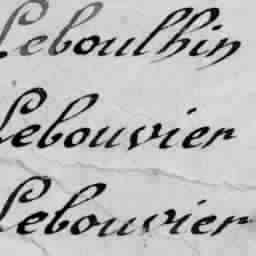 Leboulhin
Lebouvier
Lebouvier